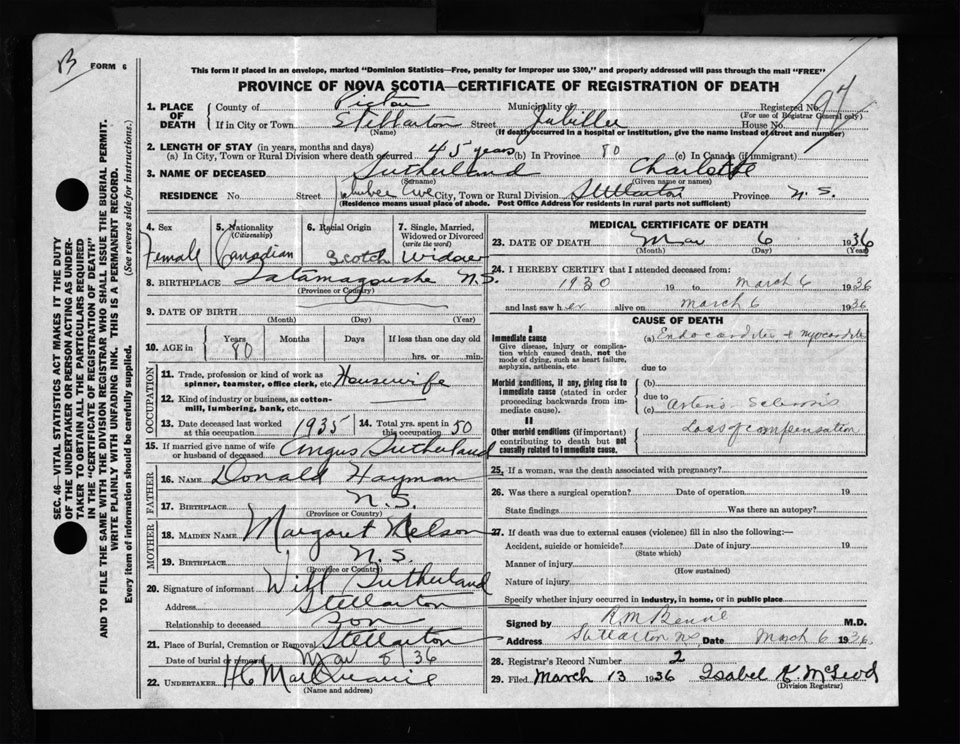 B
FORM 6
This form if placed in an envelope, marked "Dominion Statistics—Free, penalty for improper use $300," and properly addressed will pass through the mail "FREE"
PROVINCE OF NOVA SCOTIA—CERTIFICATE OF REGISTRATION OF DEATH
1. PLACE OF DEATH
County of Pictou Municipality of Registered No. 97
(For use of Registrar General only)
If in City or Town Stellarton Street House No.
(Name) (If death occurred in a hospital or institution, give the name instead of street and number)
2. LENGTH OF STAY (in years, months and days)
(a) In City, Town or Rural Division where death occurred 45 years (b) In Province 80 (c) In Canada (if immigrant)
3. NAME OF DECEASED Sutherland Charlotte
(Surname) (Given name or names)
RESIDENCE No. Street Ave City, Town or Rural Division Stellarton Province N. S.
(Residence means usual place of abode. Post Office Address for residents in rural parts not sufficient)
4. Sex Female
5. Nationality (Citizenship) Canadian
6. Racial Origin Scotch
7. Single, Married, Widowed or Divorced (write the word) Widow
8. BIRTHPLACE Tatamagouche N.S.
(Province or Country)
9. DATE OF BIRTH
(Month) (Day) (Year)
10. AGE in Years 80 Months Days If less than one day old
hrs. or min.
OCCUPATION
11. Trade, profession or kind of work as spinner, teamster, office clerk, etc. Housewife
12. Kind of industry or business, as cotton-mill, lumbering, bank, etc.
13. Date deceased last worked at this occupation 1935 14. Total yrs. spent in this occupation 50
15. If married give name of wife or husband of deceased Angus Sutherland
FATHER
16. NAME Donald Hayman
17. BIRTHPLACE N.S.
(Province or Country)
MOTHER
18. MAIDEN NAME Margaret Nelson
19. BIRTHPLACE N.S.
(Province or Country)
20. Signature of informant Will Sutherland
Address Stellarton
Relationship to deceased Son
21. Place of Burial, Cremation or Removal Stellarton
Date of burial or removal Mar 8/36
22. UNDERTAKER
(Name and address)
MEDICAL CERTIFICATE OF DEATH
23. DATE OF DEATH Mar 6 1936
(Month) (Day)
24. I HEREBY CERTIFY that I attended deceased from:
1930 19 to March 6 1936
and last saw her alive on March 6 1936
CAUSE OF DEATH
I
Immediate cause
Give disease, injury or complication which caused death, not the mode of dying, such as heart failure, asphyxia, asthenia, etc
(a) Endocarditis & myocarditis
due to
Morbid conditions, if any, giving rise to immediate cause (stated in order proceeding backwards from immediate cause).
(b)
due to
(c) Arterio Sclerosis
II
Other morbid conditions (if important) contributing to death but not causally related to immediate cause.
Loss of compensation
25. If a woman, was the death associated with pregnancy?
26. Was there a surgical operation? Date of operation 19
State findings Was there an autopsy?
27. If death was due to external causes (violence) fill in also the following:—
Accident, suicide or homicide? Date of injury 19
(State which)
Manner of injury
(How sustained)
Nature of injury
Specify whether injury occurred in industry, in home, or in public place
Signed by M.D.
Address Stellarton NS Date March 6 1936
28. Registrar's Record Number 2
29. Filed March 13 1936 Isabel K. McLeod
(Division Registrar)
SEC. 46—VITAL STATISTICS ACT MAKES IT THE DUTY
OF THE UNDERTAKER OR PERSON ACTING AS UNDERTAKER TO OBTAIN ALL THE PARTICULARS REQUIRED
IN THE "CERTIFICATE OF REGISTRATION OF DEATH"
AND TO FILE THE SAME WITH THE DIVISION REGISTRAR WHO SHALL ISSUE THE BURIAL PERMIT.
WRITE PLAINLY WITH UNFADING INK. THIS IS A PERMANENT RECORD.
Every item of information should be carefully supplied. (See reverse side for instructions.)